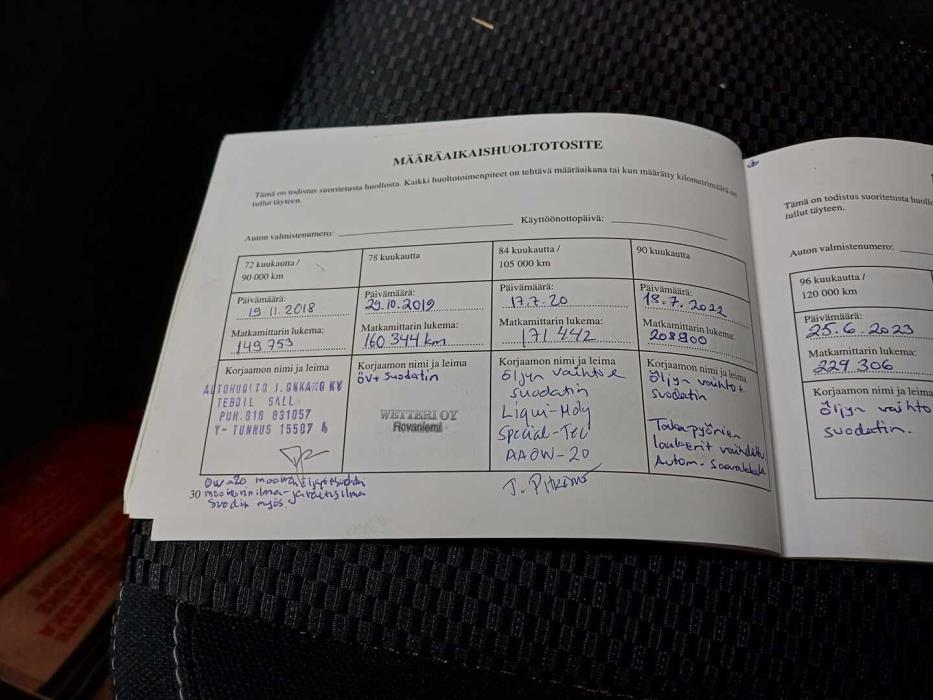 MÄÄRÄAIKAISHUOLTOTOSITE
Tämä on todistus suoritetusta huollosta. Kaikki huoltotoimenpiteet on tehtävä määräaikana tai kun määrätty kilometrimäärä on
tullut täyteen.
Auton valmistenumero: Käyttöönottopäivä:
72 kuukautta /
90 000 km
Päivämäärä:
19 11. 2018
Matkamittarin lukema:
149 753
Korjaamon nimi ja leima
AUTOHUOLTO J.ONKAMO KY
TEBOIL SALL
PUH.016 831057
Y- TUNNUS 15507
0W-20
suodin myös
30
78 kuukautta
Päivämäärä:
29.10.2019
Matkamittarin lukema:
160 344 km
Korjaamon nimi ja leima
ÖV+ suodatin
WETTERI OY
Rovaniemi
84 kuukautta /
105 000 km
Päivämäärä:
17.7.20
Matkamittarin lukema:
171 442
Korjaamon nimi ja leima
öljyn vaihto &
suodatin
Liqui-Moly
Special-Tec
AA0W-20
90 kuukautta
Päivämäärä:
18.7.2022
Matkamittarin lukema:
208900
Korjaamon nimi ja leima
öljyn vaihto +
suodatin
Takapyörien
laakerit vaihdettu
Tämä on todistus suoritetusta
tullut täyteen.
Auton valmistenumero:
96 kuukautta /
120 000 km
Päivämäärä:
25.6.2023
Matkamittarin lukema:
229 306
Korjaamon nimi ja leima
öljyn vaihto
suodatin.